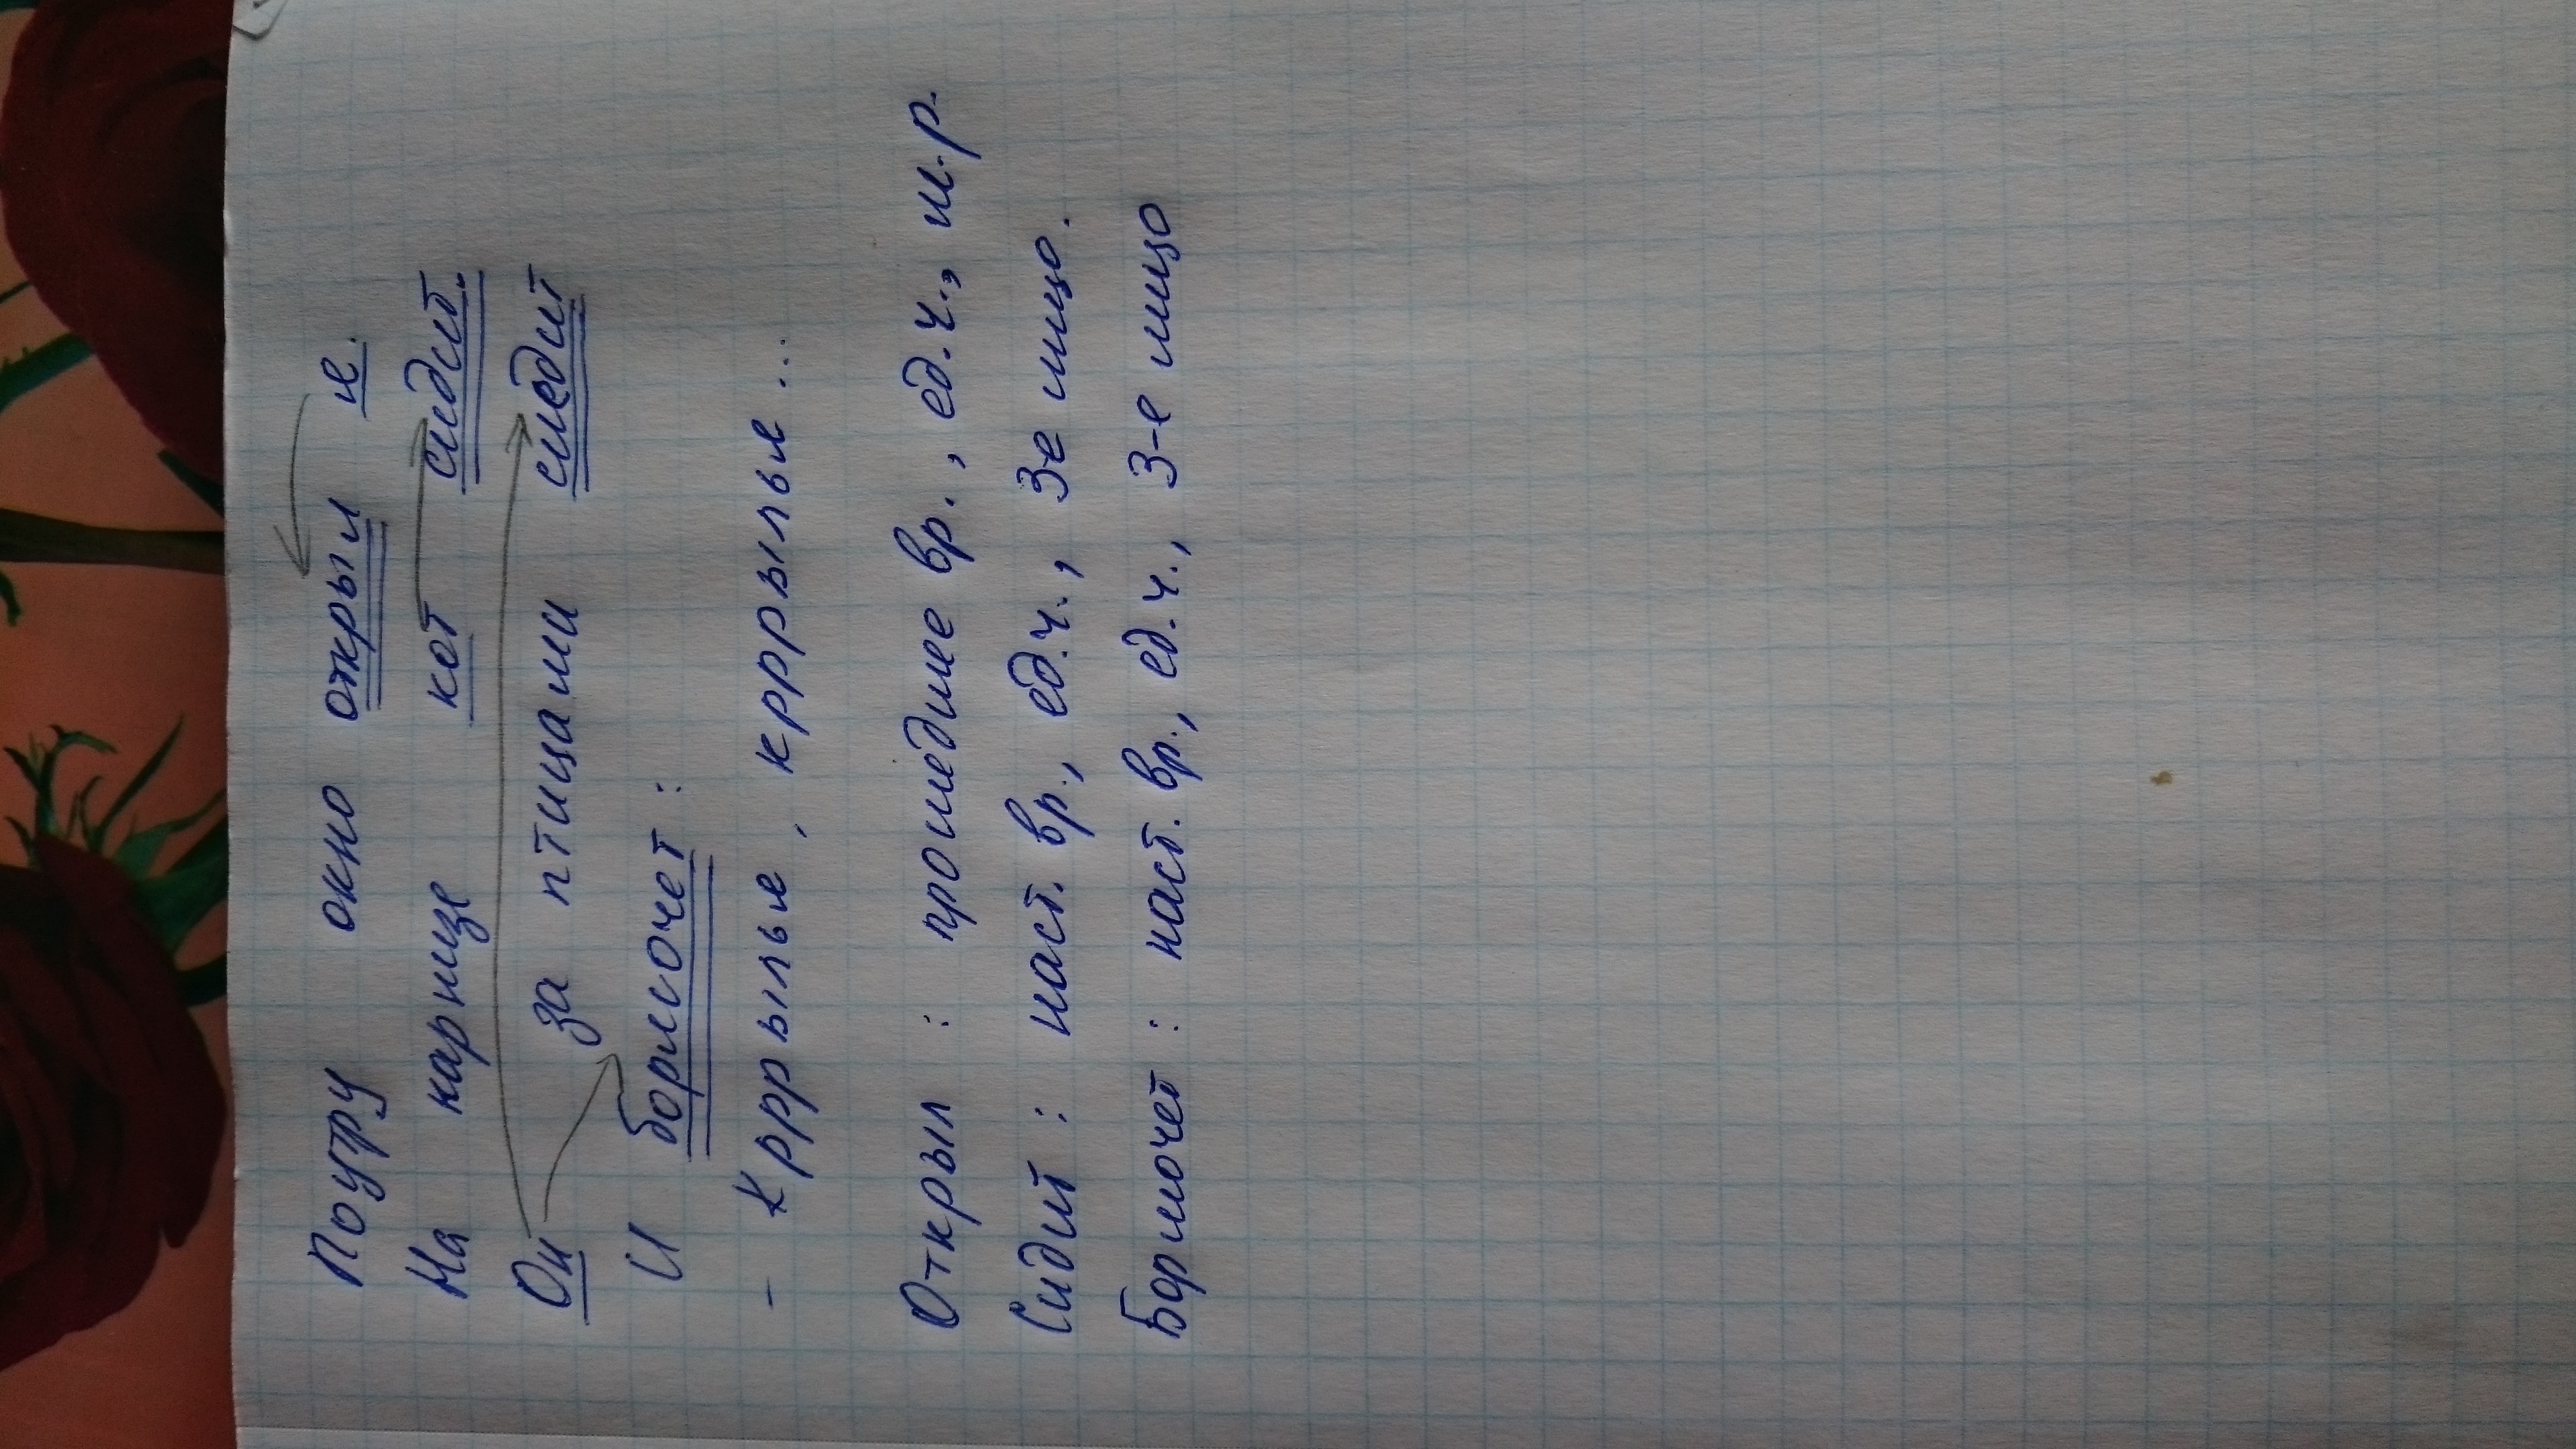 Поутру окно открыл я.
На карнизе кот сидит.
Он за птицами следит
И бормочет:
- Крррылья, крррылья...
Открыл : прошедшее вр., ед.ч., м.р.
Сидит : наст. вр., ед.ч., 3е лицо.
Бормочет : наст. вр., ед.ч., 3-е лицо